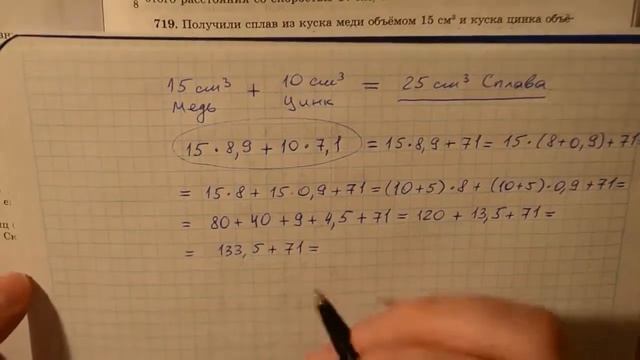 8 этого расстояния со скоростью
719. Получили сплав из куска меди объёмом 15 см³ и куска цинка объё-
15 см³ + 10 см³ = 25 см³ Сплава
медь цинк
15·8,9 + 10·7,1 = 15·8,9 + 71 = 15·(8+0,9)+71
= 15·8 + 15·0,9 + 71 = (10+5)·8 + (10+5)·0,9 + 71 =
= 80 + 40 + 9 + 4,5 + 71 = 120 + 13,5 + 71 =
= 133,5 + 71 =